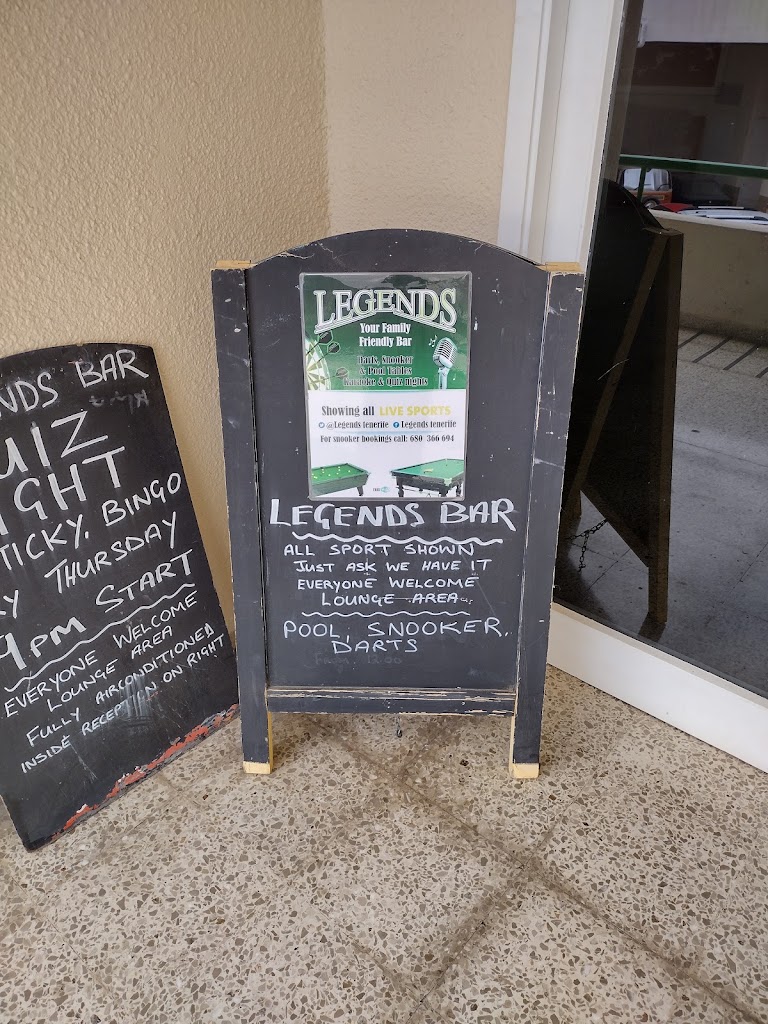 LEGENDS
Your Family
Friendly Bar
Darts, Snooker
& Pool Tables
Karaoke & Quiz nights
Showing all LIVE SPORTS
@Legends tenerife Legends tenerife
For snooker bookings call: 680 366 694
LEGENDS BAR
ALL SPORT SHOWN
JUST ASK WE HAVE IT
EVERYONE WELCOME
LOUNGE AREA
POOL, SNOOKER,
DARTS
NDS BAR
UIZ
IGHT
TICKY, BINGO
Y THURSDAY
9PM START
EVERYONE WELCOME
LOUNGE AREA
FULLY AIRCONDITIONED
INSIDE RECEPTION ON RIGHT